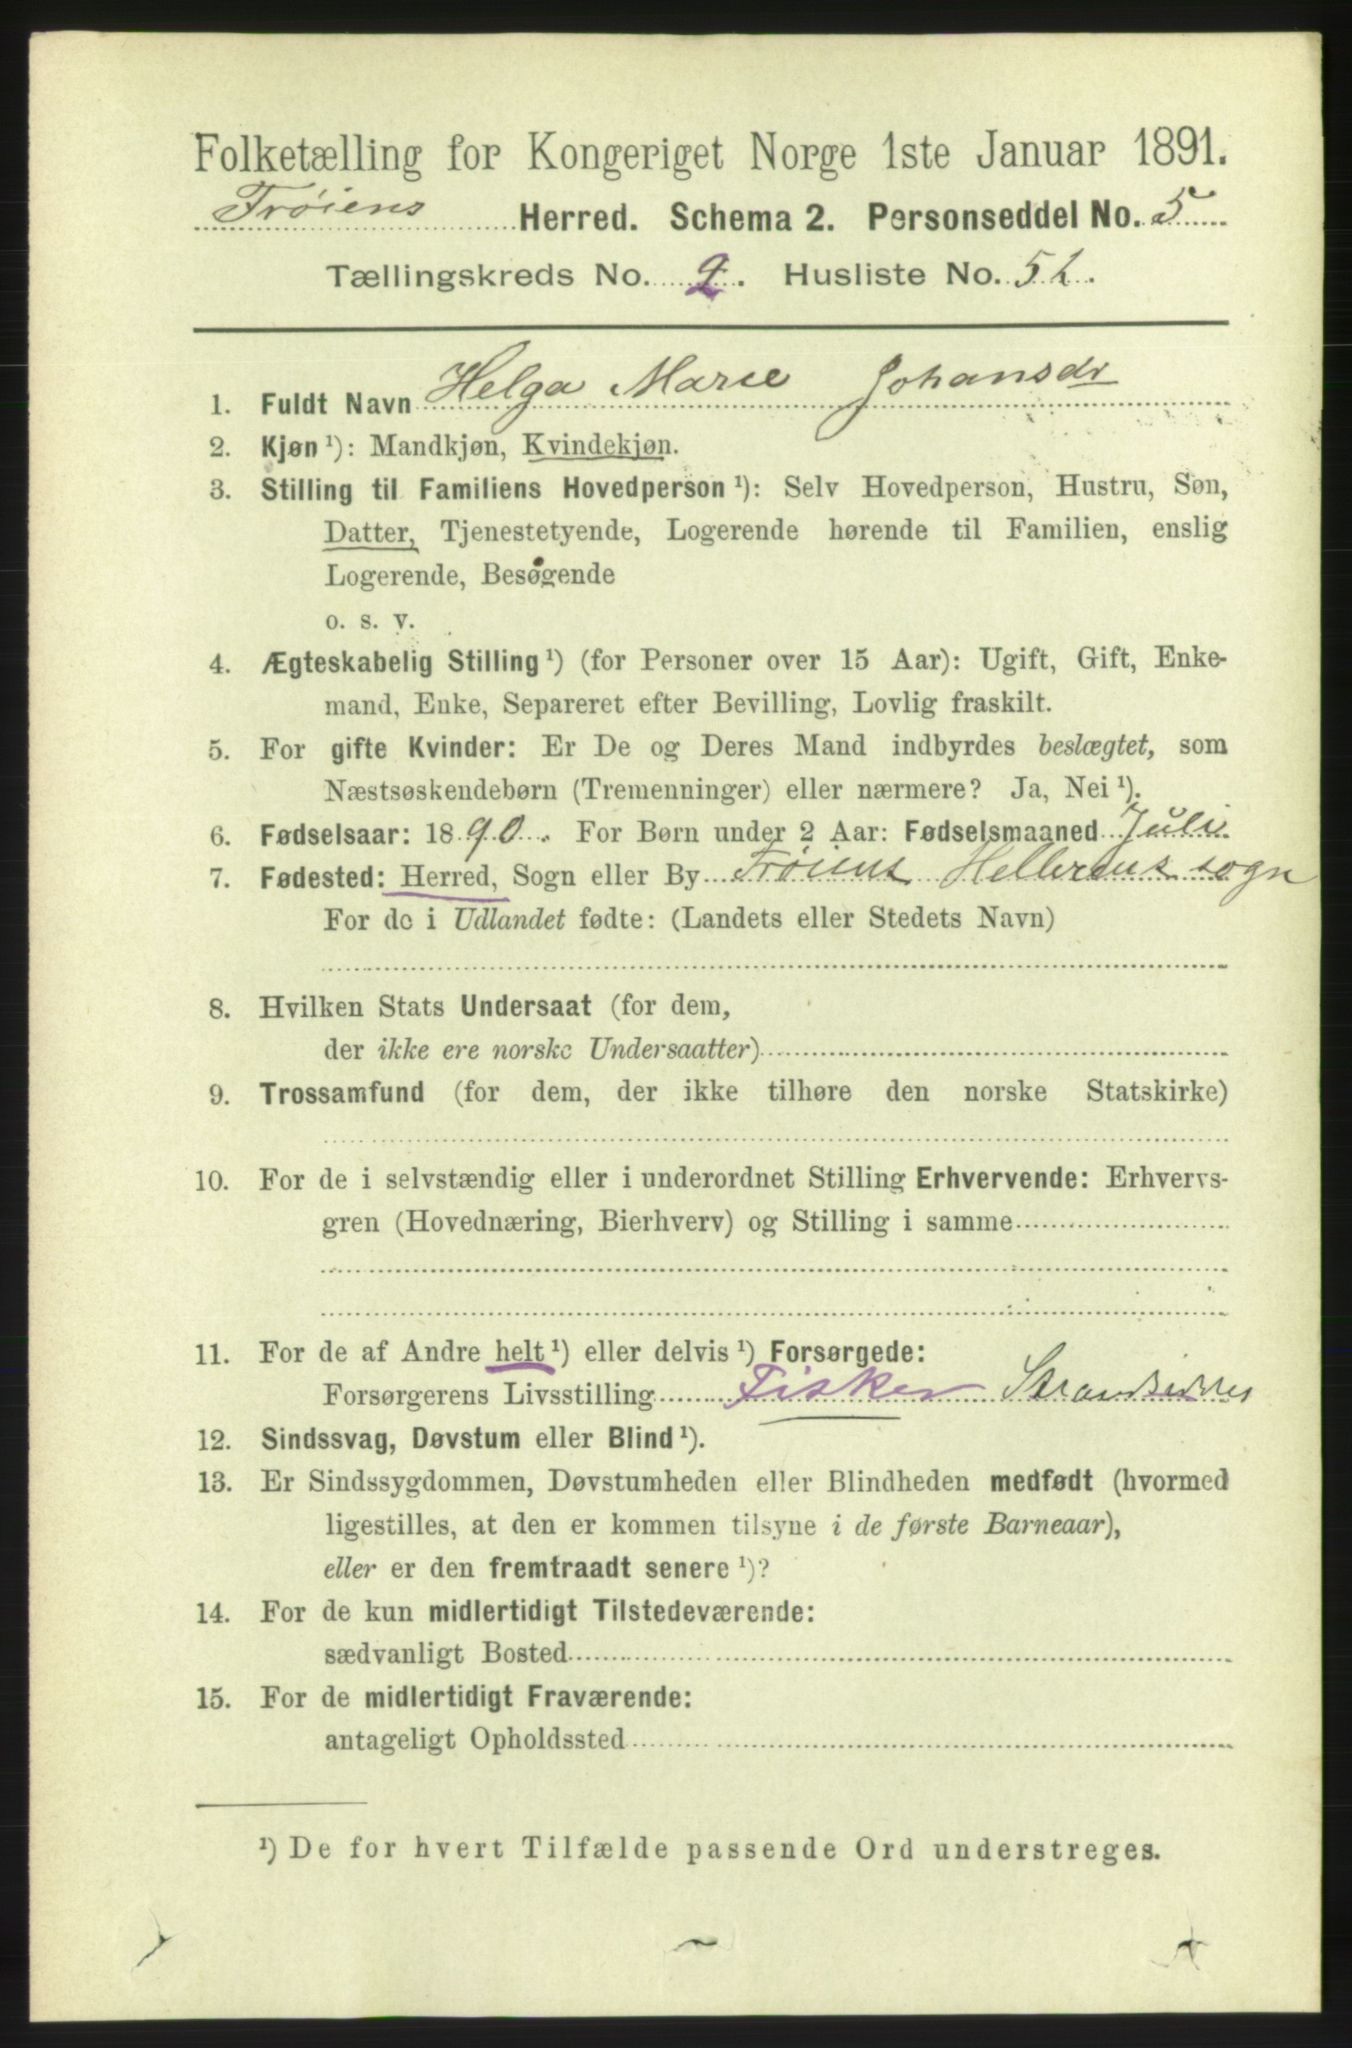 Folketælling for Kongeriget Norge 1ste Januar 1891.
Frøiens Herred. Schema 2. Personseddel No. 5
Tællingskreds No. 2. Husliste No. 52.
1. Fuldt Navn Helga Marie Johansdr
2. Kjøn ¹): Mandkjøn, Kvindekjøn.
3. Stilling til Familiens Hovedperson ¹): Selv Hovedperson, Hustru, Søn,
Datter, Tjenestetyende, Logerende hørende til Familien, enslig
Logerende, Besøgende
o. s. v.
4. Ægteskabelig Stilling ¹) (for Personer over 15 Aar): Ugift, Gift, Enke-
mand, Enke, Separeret efter Bevilling, Lovlig fraskilt.
5. For gifte Kvinder: Er De og Deres Mand indbyrdes beslægtet, som
Næstsøskendebørn (Tremenninger) eller nærmere? Ja, Nei ¹).
6. Fødselsaar: 1890. For Børn under 2 Aar: Fødselsmaaned Juli
7. Fødested: Herred, Sogn eller By Frøiens sogn
For de i Udlandet fødte: (Landets eller Stedets Navn)
8. Hvilken Stats Undersaat (for dem,
der ikke ere norske Undersaatter)
9. Trossamfund (for dem, der ikke tilhøre den norske Statskirke)
10. For de i selvstændig eller i underordnet Stilling Erhvervende: Erhvervs-
gren (Hovednæring, Bierhverv) og Stilling i samme
11. For de af Andre helt ¹) eller delvis ¹) Forsørgede:
Forsørgerens Livsstilling Fisker Strandsidder
12. Sindssvag, Døvstum eller Blind ¹).
13. Er Sindssygdommen, Døvstumheden eller Blindheden medfødt (hvormed
ligestilles, at den er kommen tilsyne i de første Barneaar),
eller er den fremtraadt senere ¹)?
14. For de kun midlertidigt Tilstedeværende:
sædvanligt Bosted
15. For de midlertidigt Fraværende:
antageligt Opholdssted
¹) De for hvert Tilfælde passende Ord understreges.